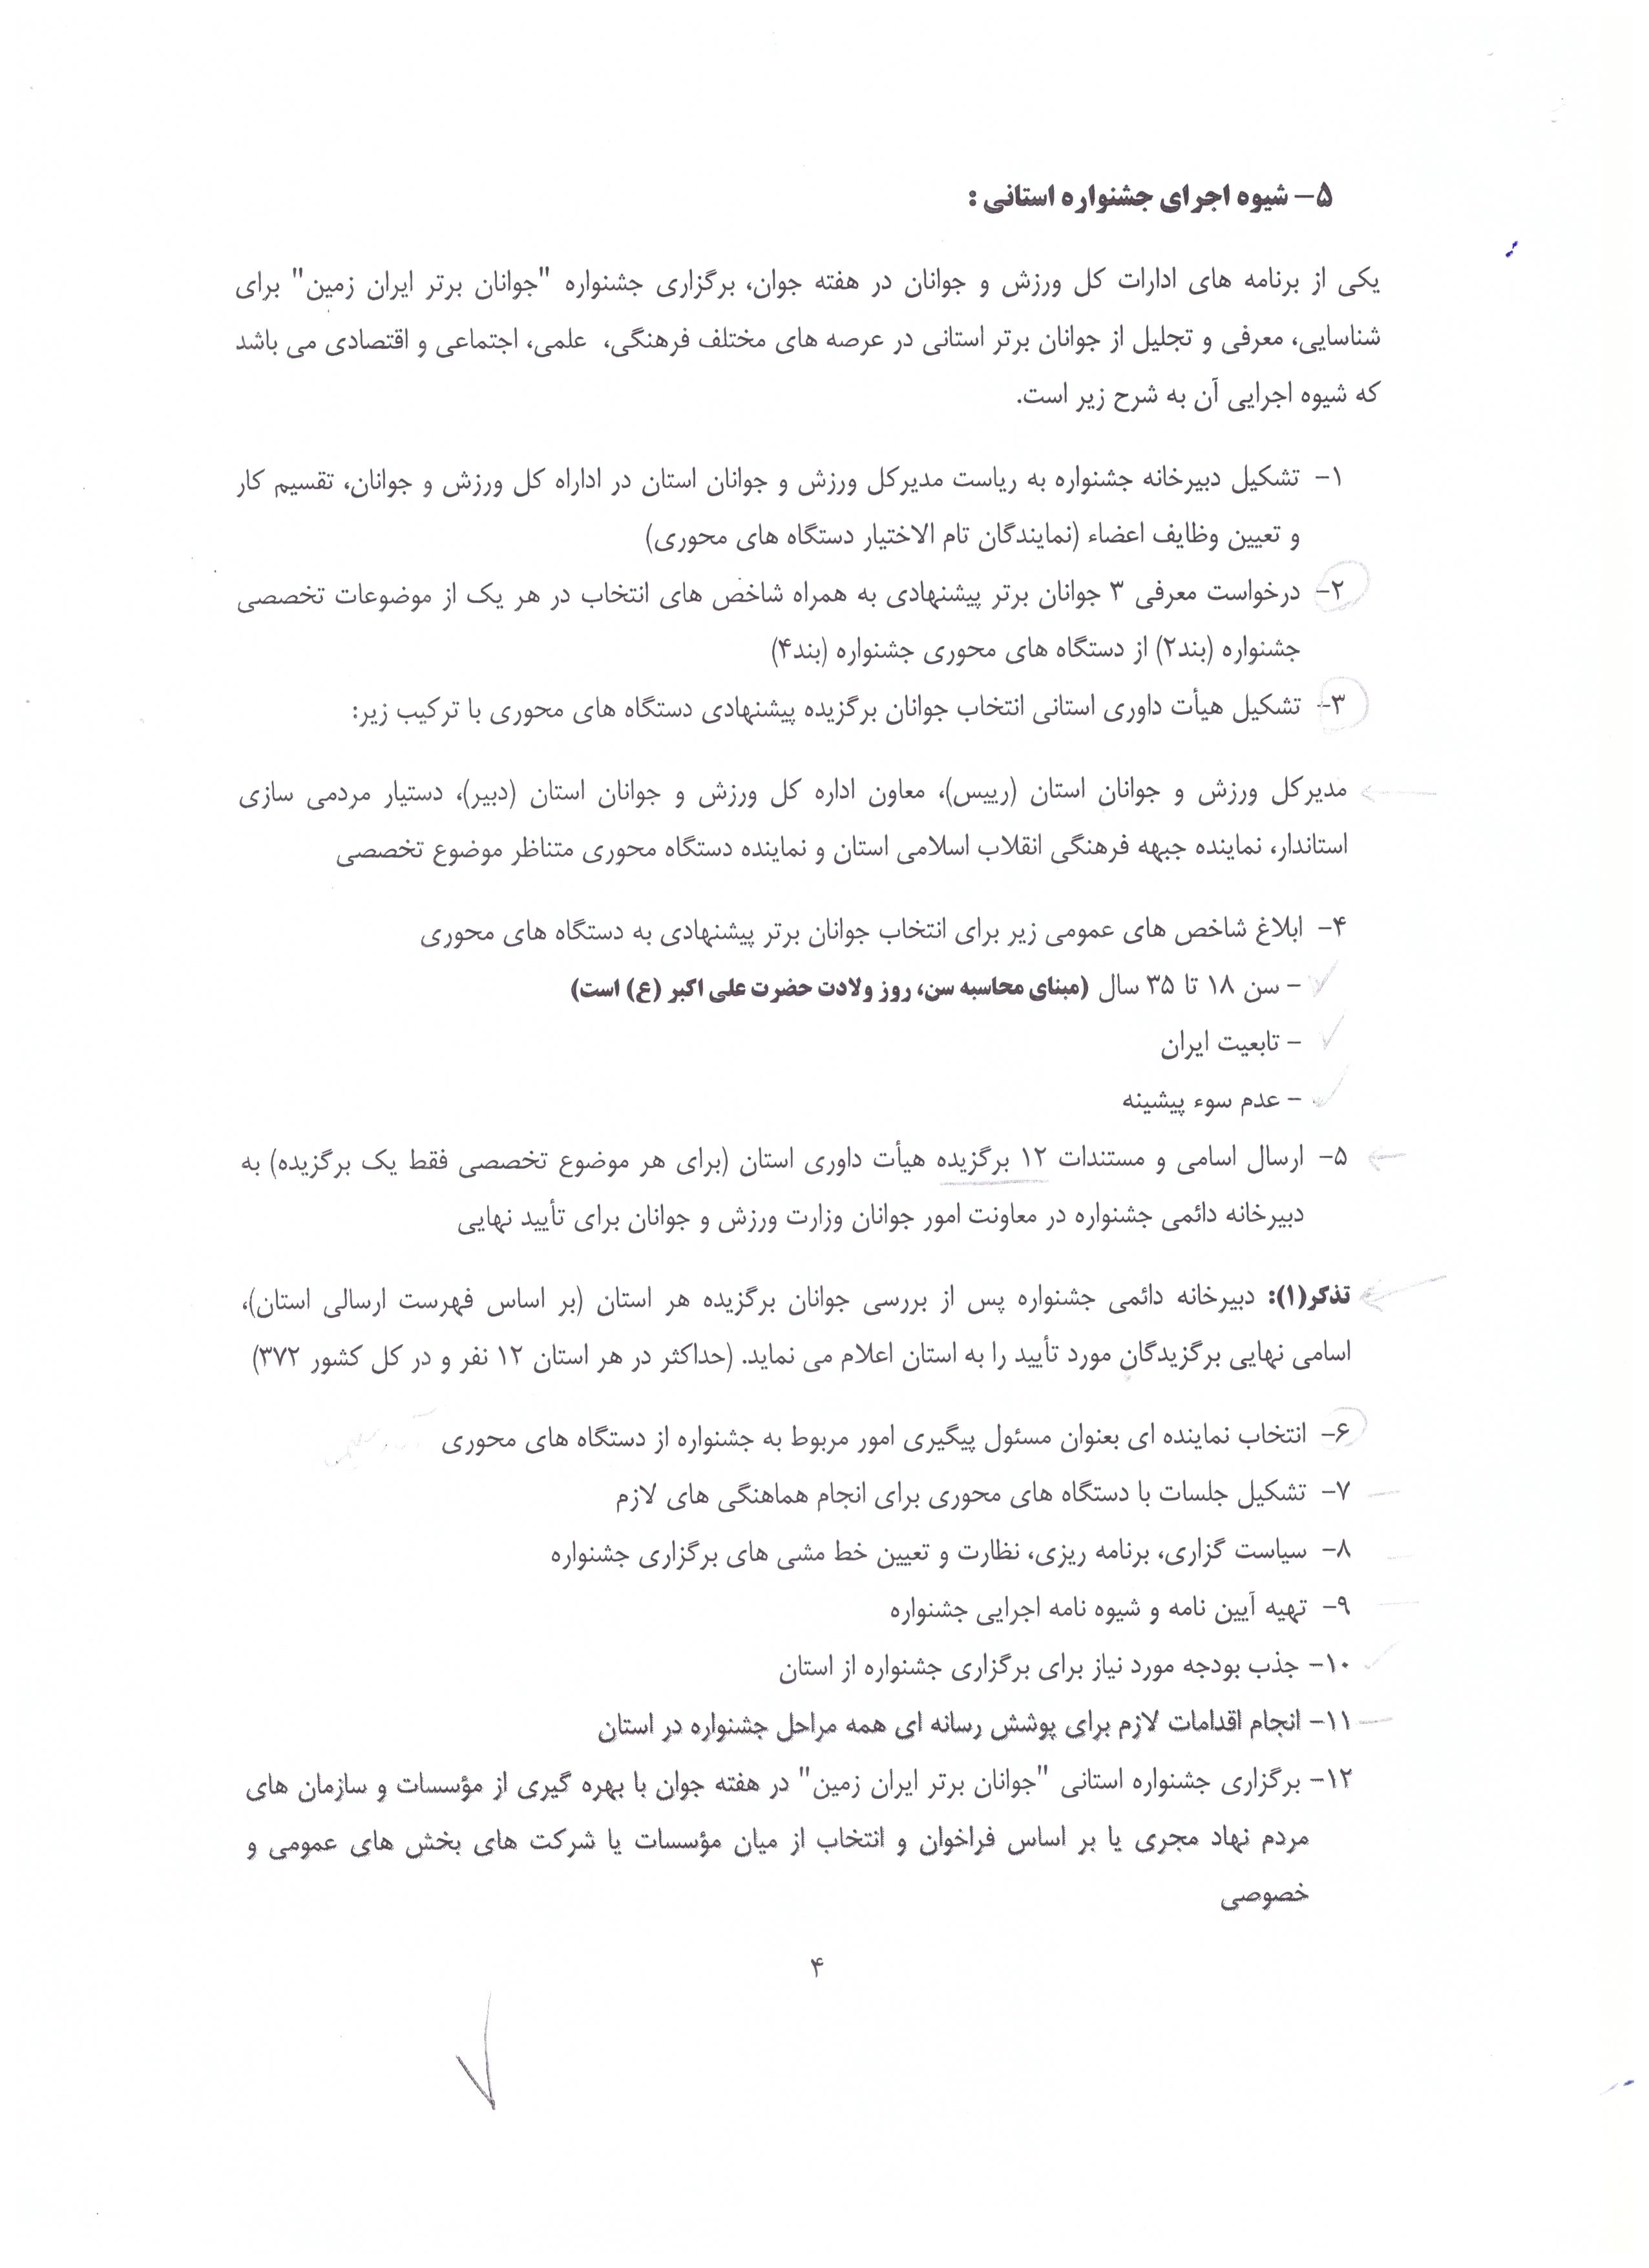 ۵- شیوه اجرای جشنواره استانی :
یکی از برنامه های ادارات کل ورزش و جوانان در هفته جوان، برگزاری جشنواره "جوانان برتر ایران زمین" برای
شناسایی، معرفی و تجلیل از جوانان برتر استانی در عرصه های مختلف فرهنگی، علمی، اجتماعی و اقتصادی می باشد
که شیوه اجرایی آن به شرح زیر است.
۱- تشکیل دبیرخانه جشنواره به ریاست مدیرکل ورزش و جوانان استان در اداراه کل ورزش و جوانان، تقسیم کار
و تعیین وظایف اعضاء (نمایندگان تام الاختیار دستگاه های محوری)
۲- درخواست معرفی ۳ جوانان برتر پیشنهادی به همراه شاخص های انتخاب در هر یک از موضوعات تخصصی
جشنواره (بند۲) از دستگاه های محوری جشنواره (بند۴)
۳- تشکیل هیأت داوری استانی انتخاب جوانان برگزیده پیشنهادی دستگاه های محوری با ترکیب زیر:
مدیرکل ورزش و جوانان استان (رییس)، معاون اداره کل ورزش و جوانان استان (دبیر)، دستیار مردمی سازی
استاندار، نماینده جبهه فرهنگی انقلاب اسلامی استان و نماینده دستگاه محوری متناظر موضوع تخصصی
۴- ابلاغ شاخص های عمومی زیر برای انتخاب جوانان برتر پیشنهادی به دستگاه های محوری
- سن ۱۸ تا ۳۵ سال (مبنای محاسبه سن، روز ولادت حضرت علی اکبر (ع) است)
- تابعیت ایران
- عدم سوء پیشینه
۵- ارسال اسامی و مستندات ۱۲ برگزیده هیأت داوری استان (برای هر موضوع تخصصی فقط یک برگزیده) به
دبیرخانه دائمی جشنواره در معاونت امور جوانان وزارت ورزش و جوانان برای تأیید نهایی
تذکر(۱): دبیرخانه دائمی جشنواره پس از بررسی جوانان برگزیده هر استان (بر اساس فهرست ارسالی استان)،
اسامی نهایی برگزیدگان مورد تأیید را به استان اعلام می نماید. (حداکثر در هر استان ۱۲ نفر و در کل کشور ۳۷۲)
۶- انتخاب نماینده ای بعنوان مسئول پیگیری امور مربوط به جشنواره از دستگاه های محوری
۷- تشکیل جلسات با دستگاه های محوری برای انجام هماهنگی های لازم
۸- سیاست گزاری، برنامه ریزی، نظارت و تعیین خط مشی های برگزاری جشنواره
۹- تهیه آیین نامه و شیوه نامه اجرایی جشنواره
۱۰- جذب بودجه مورد نیاز برای برگزاری جشنواره از استان
۱۱- انجام اقدامات لازم برای پوشش رسانه ای همه مراحل جشنواره در استان
۱۲- برگزاری جشنواره استانی "جوانان برتر ایران زمین" در هفته جوان با بهره گیری از مؤسسات و سازمان های
مردم نهاد مجری یا بر اساس فراخوان و انتخاب از میان مؤسسات یا شرکت های بخش های عمومی و
خصوصی
۴